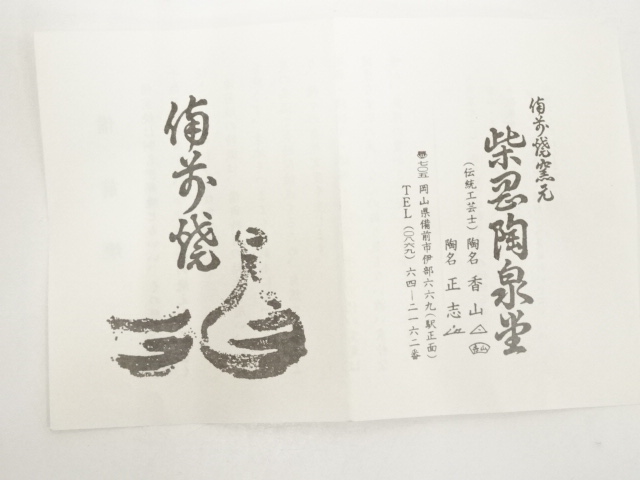 備前焼窯元
柴忍陶泉堂
(伝統工芸士) 陶名 香山
陶名 正志
〒七〇五 岡山県備前市伊部六六九(駅正面)
TEL(〇八六九)六四-二一六二番
備前焼